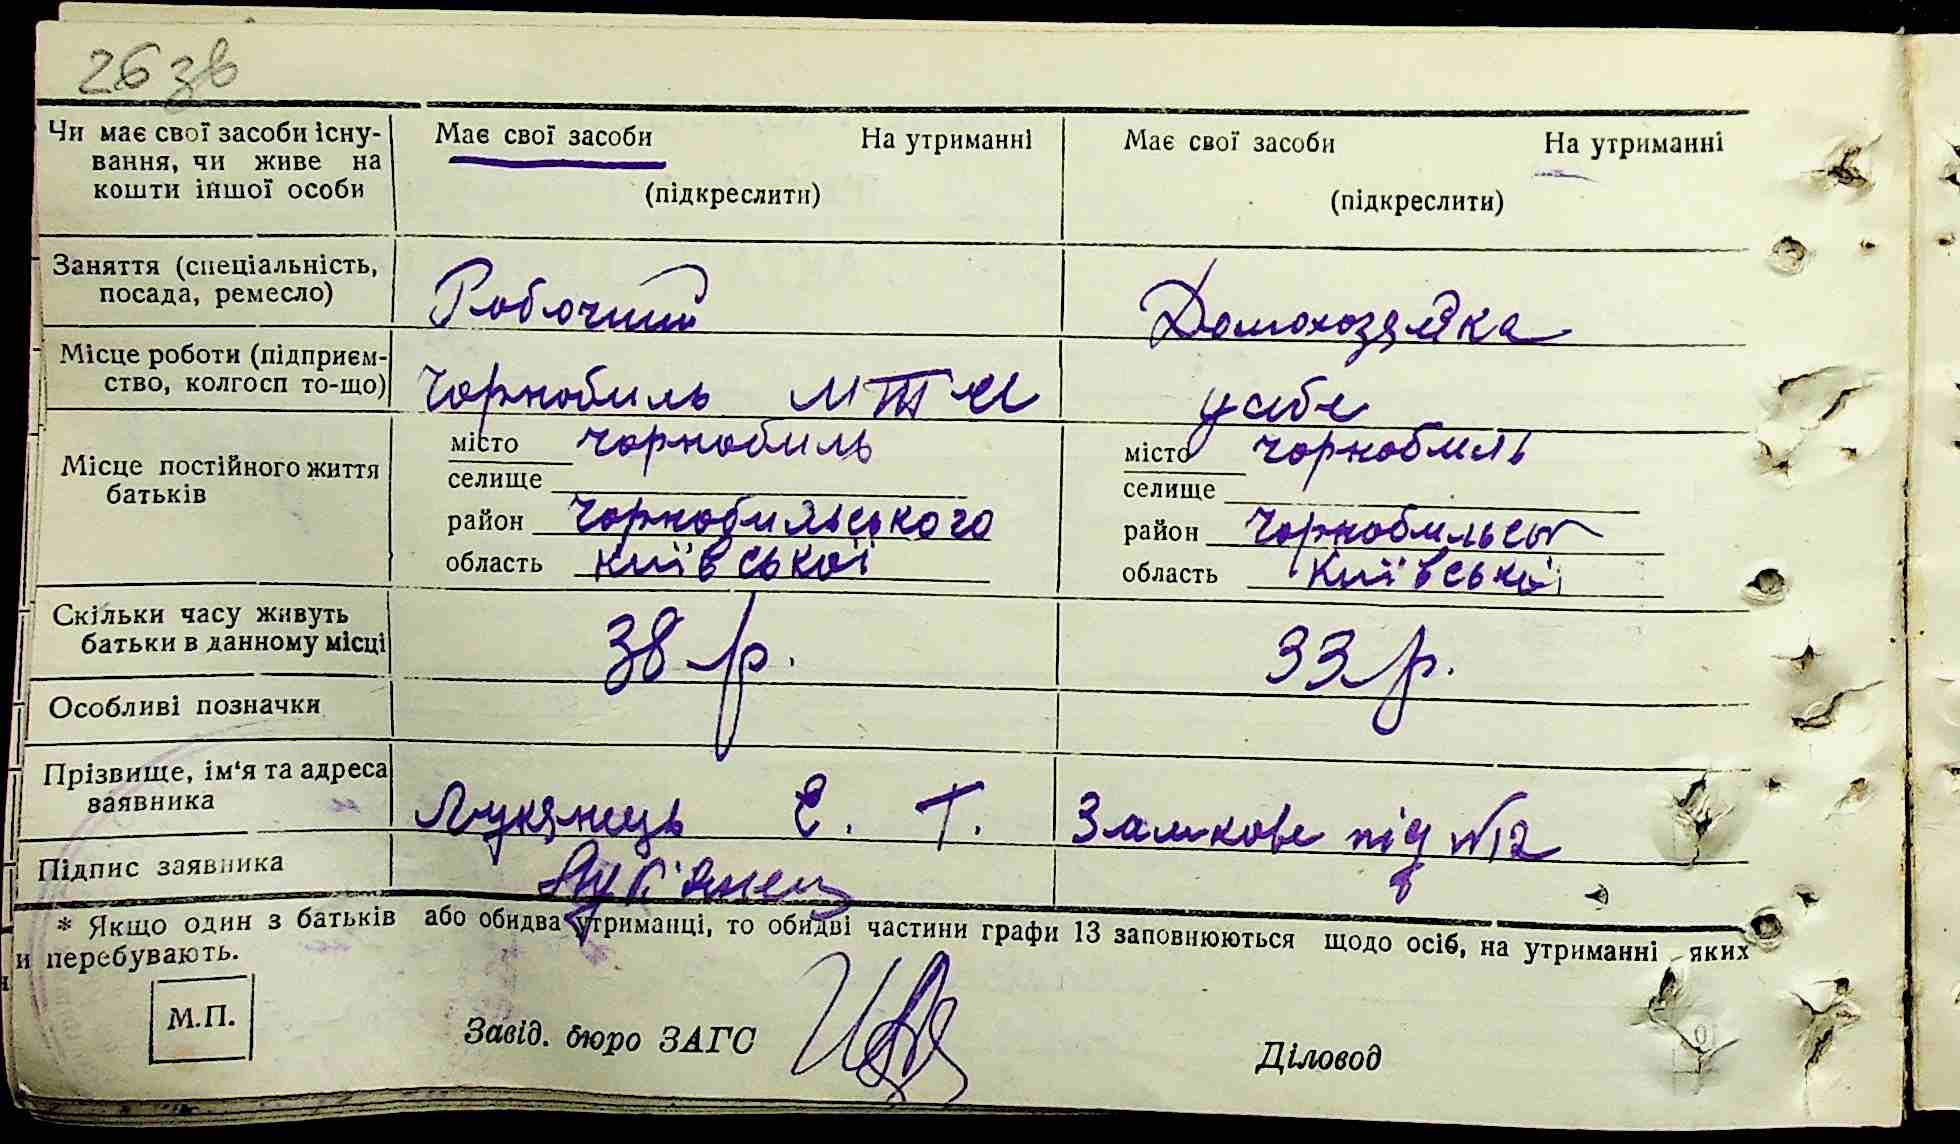 26 зв
Чи має свої засоби існу-
вання, чи живе на
кошти іншої особи
Має свої засоби На утриманні
(підкреслити)
Має свої засоби На утриманні
(підкреслити)
Заняття (спеціальність,
посада, ремесло)
Робочий
Домохозяйка
Місце роботи (підприєм-
ство, колгосп то-що)
Чорнобиль МТМ
у себе
Місце постійного життя
батьків
місто Чорнобиль
селище
район Чорнобильського
область Київської
місто Чорнобиль
селище
район Чорнобильсь
область Київської
Скільки часу живуть
батьки в данному місці
38 р.
33 р.
Особливі позначки
Прізвище, ім'я та адреса
заявника
Лукянець Є. Т.
Замкове під №12
Підпис заявника
Лук'янец
* Якщо один з батьків або обидва утриманці, то обидві частини графи 13 заповнюються щодо осіб, на утриманні яких
и перебувають.
М.П.
Завід. бюро ЗАГС
Діловод